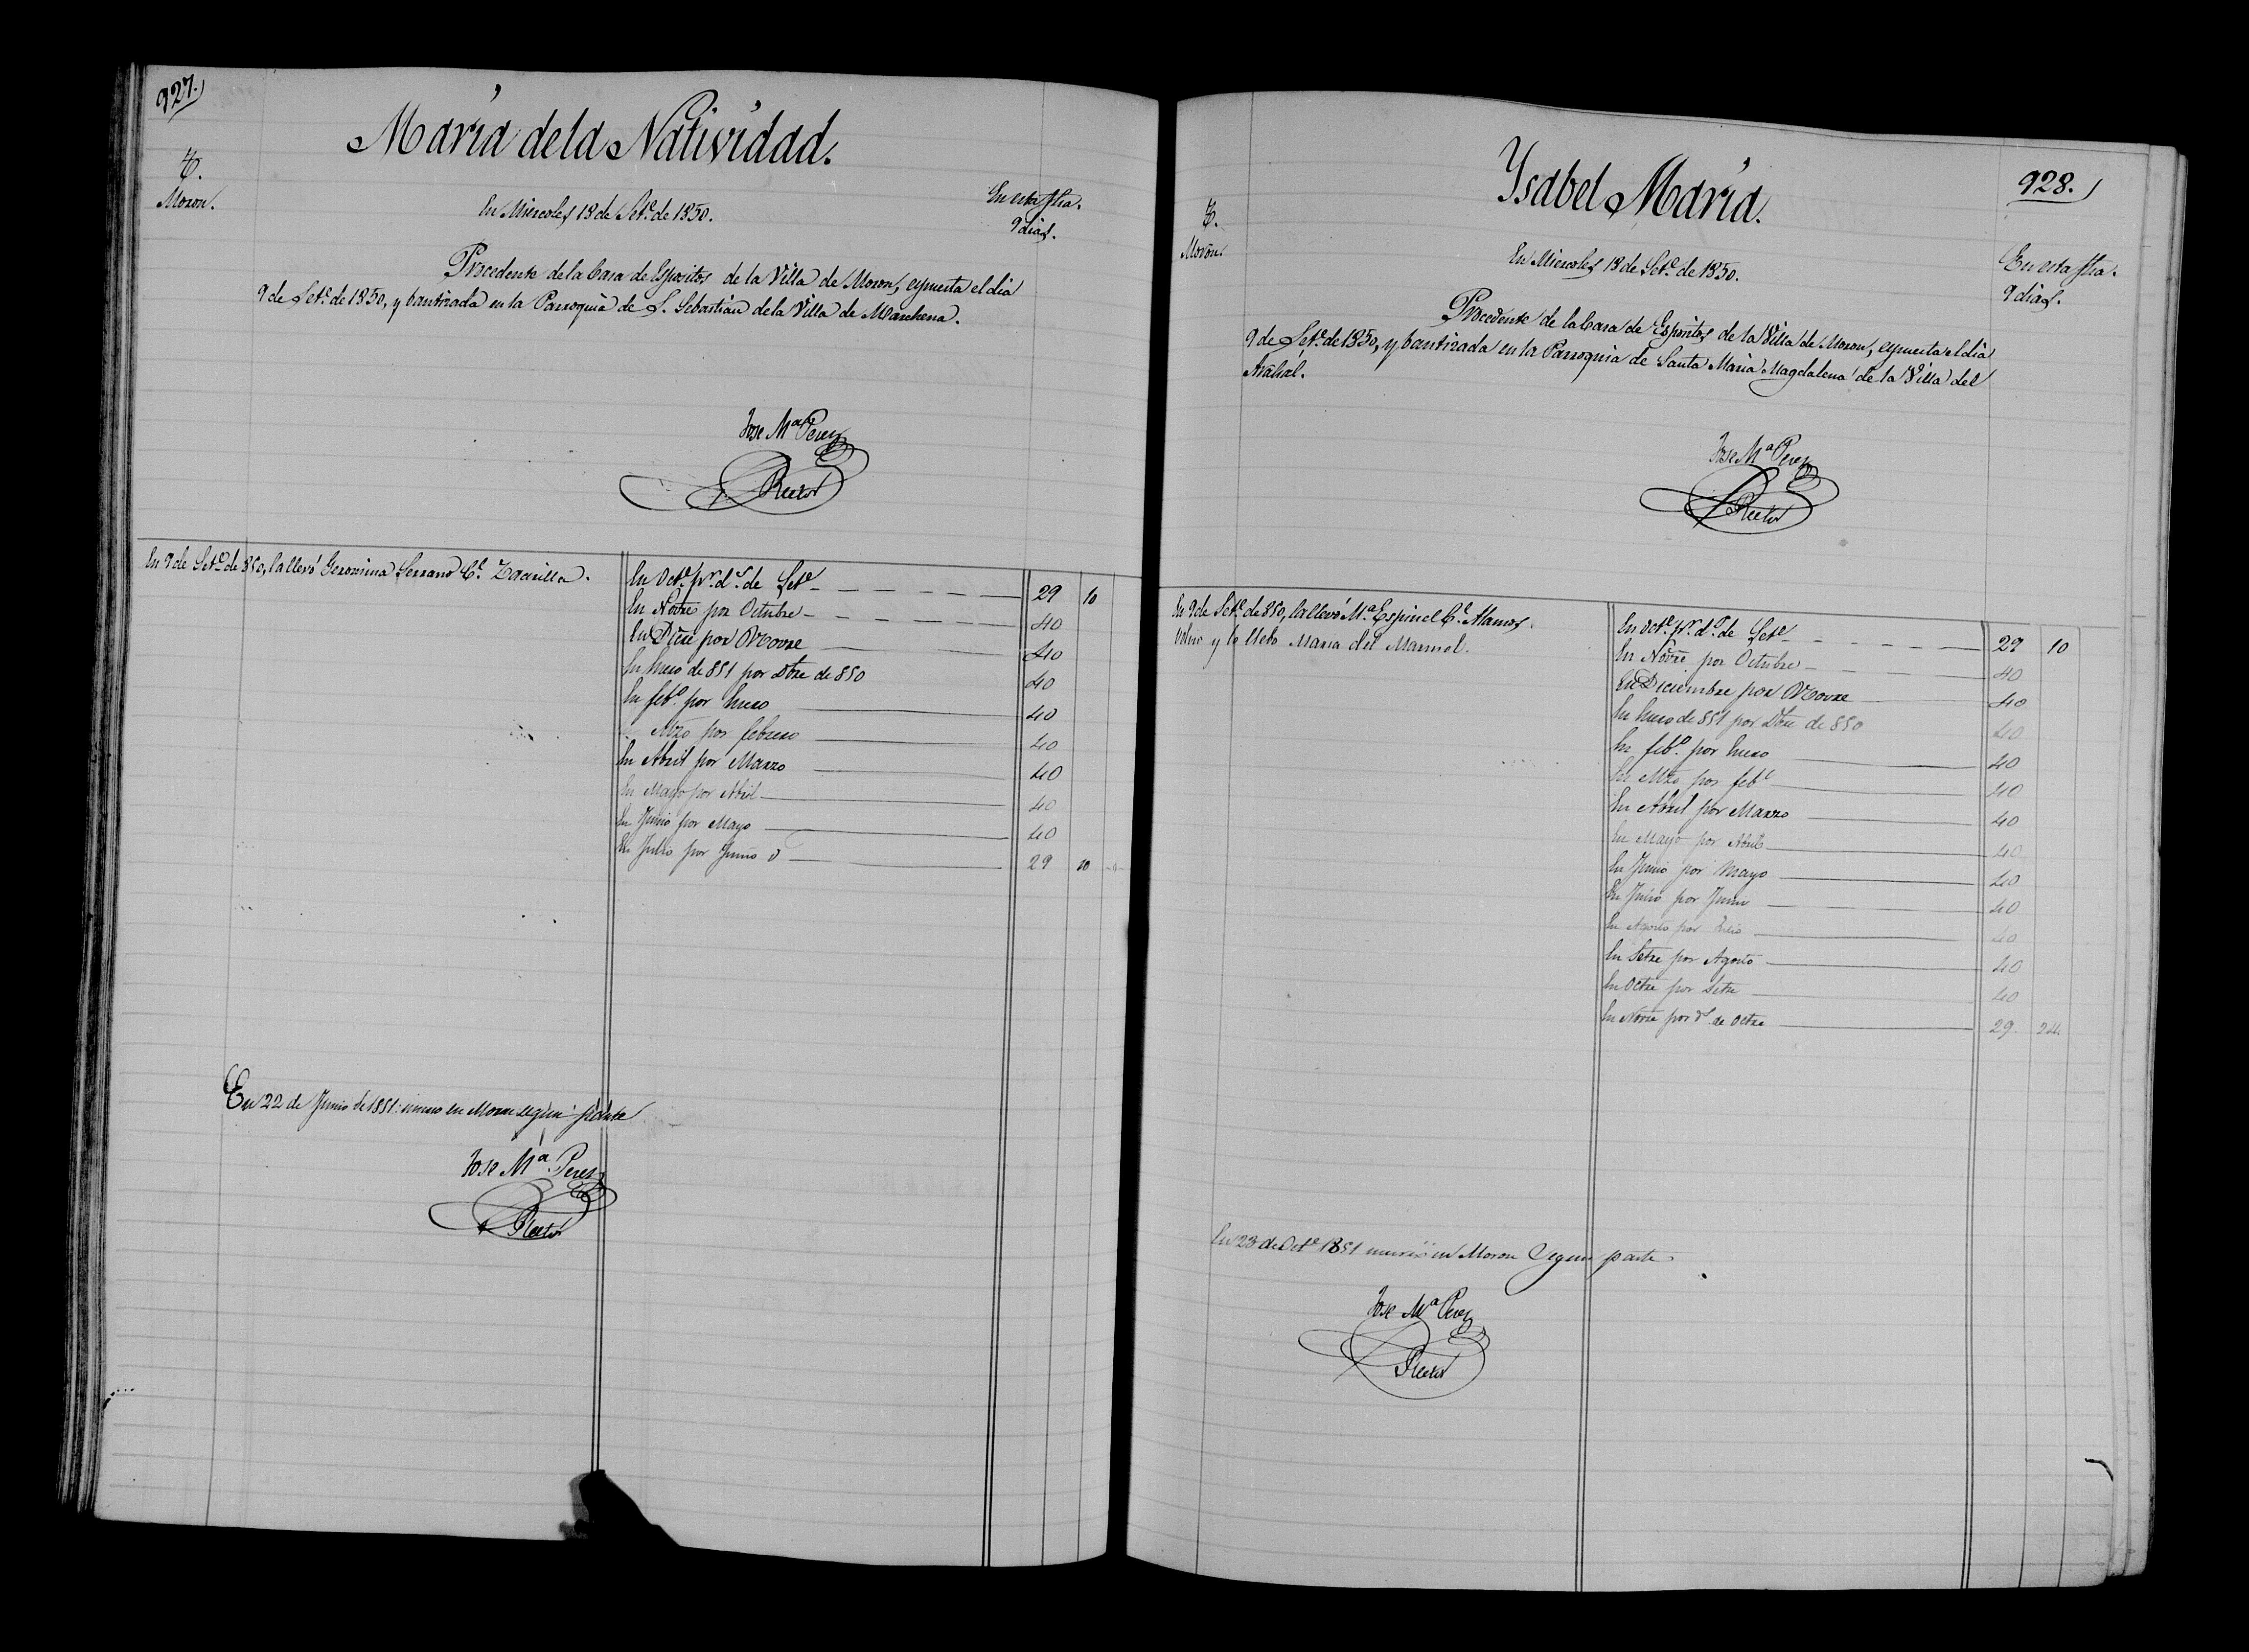 927.
María dela Natividad.
Moron.
En Miercoles 18 de Set.e de 1850.
En esta fha.
9 dias.
Procedente de la Casa de Espositos de la Villa de Moron, espuesta el dia
9 de Set.e de 1850, y bautizada en la Parroquia de S. Sebastian dela Villa de Marchena.
Jose M.a Perez
Rector
En 9 de Set.e de 850, la llevó Geronima Serrano C.e
En Oct.e p.r d.s de Set.e 29 10
En Novre por Octubre 40
En Dbre por Novre 40
En Enero de 851 por Dbre de 850 40
En feb.o por Enero 40
Mzo por febrero 40
En Abril por Marzo 40
En Mayo por Abril 40
En Junio por Mayo 40
En Julio por Junio 29 10
En 22 de Junio de 1851 murio en Moron segun parte
Jose M.a Perez
Rector
928.
Ysabel María.
Moron.
En Miercoles 18 de Set.e de 1850.
En esta fha.
9 dias.
Procedente de la Casa de Espositos de la Villa de Moron, espuesta el dia
9 de Set.e de 1850, y bautizada en la Parroquia de Santa Maria Magdalena de la Villa del
Arahal.
Jose M.a Perez
Rector
En 9 de Set.e de 850, la llevó M.a Espinel C.e Alamos.
y la llebó Maria del Marmol.
En Oct.e p.r d.s de Set.e 29 10
En Novre por Octubre 40
En Diciembre por Novre 40
En Enero de 851 por Dbre de 850 40
En feb.o por Enero 40
En Mzo por feb.o 40
En Abril por Marzo 40
En Mayo por Abril 40
En Junio por Mayo 40
En Julio por Junio 40
En Agosto por Julio 40
En Setre por Agosto 40
En Octre por Setre 40
En Novre por d.s de Octre 29. 24.
En 23 de Oct.e 1851 murió en Moron segun parte
Jose M.a Perez
Rector